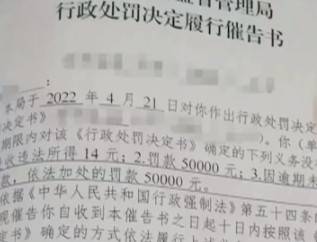 督管理局
行政处罚决定履行催告书
本局于 2022 年 4 月 21 日对你作出行政处罚决定
决定书》
期限内对该《行政处罚决定书》确定的下列义务没
收违法所得 14 元；2.罚款 50000 元；3.因逾期未
款，依法加处的罚款 50000 元。
依据《中华人民共和国行政强制法》第五十四条的
现催告你自收到本催告书之日起十日内按照该《
决定书》确定的方式依法履行上